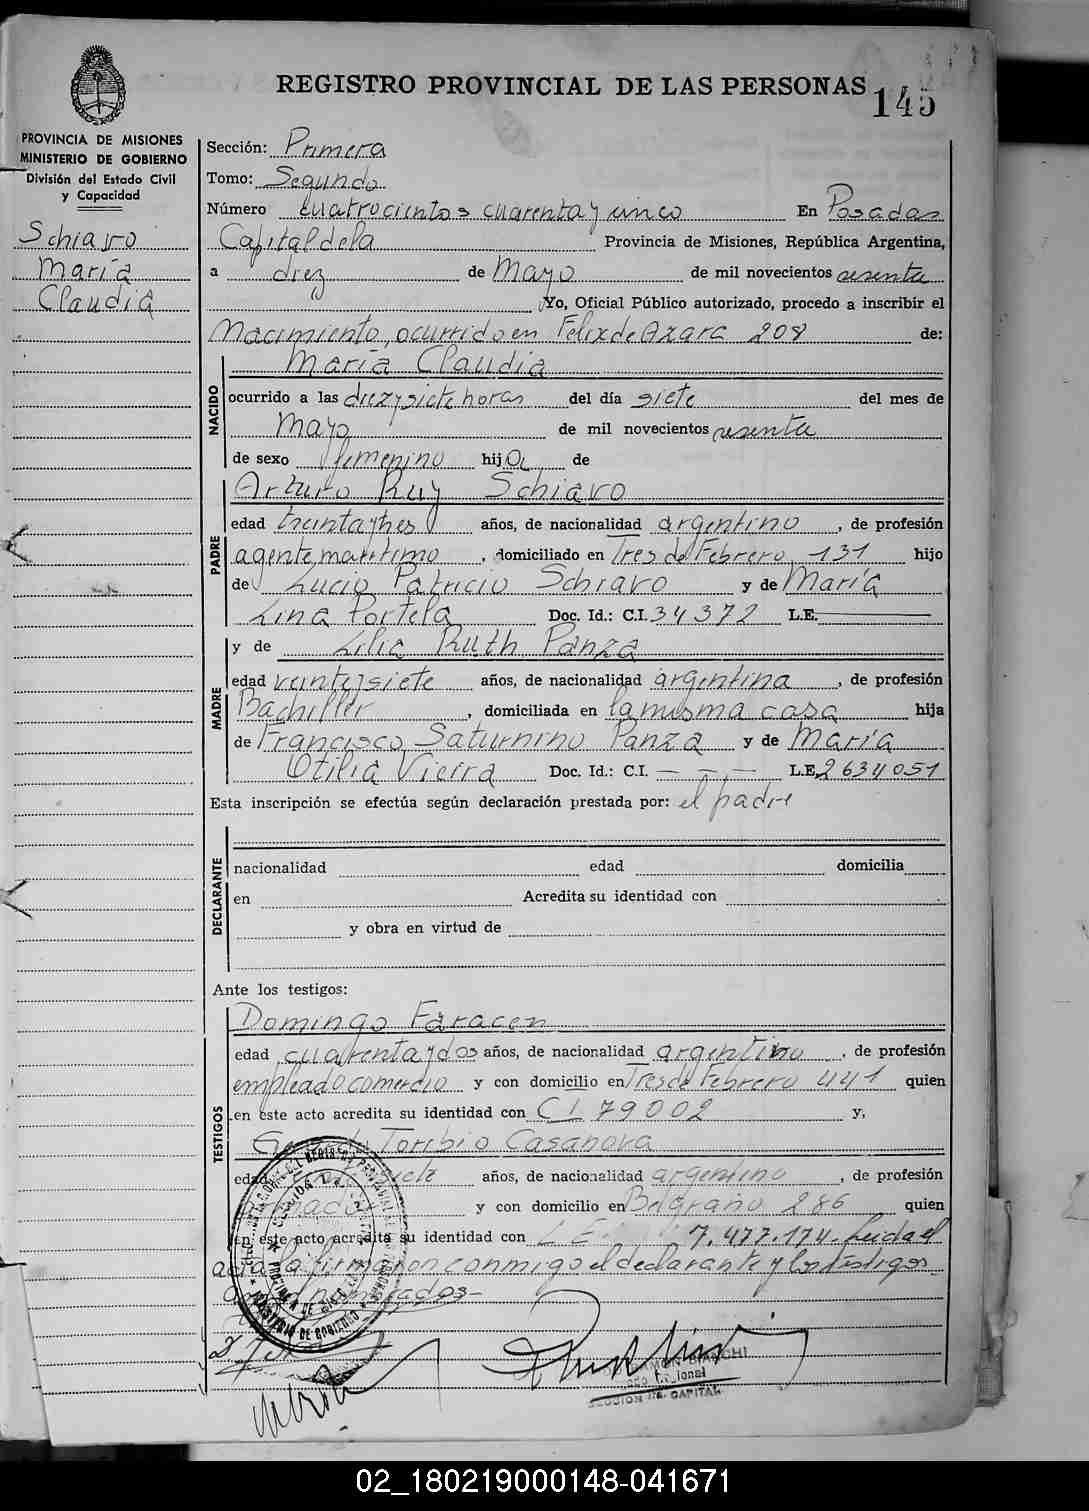 REGISTRO PROVINCIAL DE LAS PERSONAS
145
PROVINCIA DE MISIONES
MINISTERIO DE GOBIERNO
División del Estado Civil
y Capacidad
Schiavo
María
Claudia
Sección: Primera
Tomo: Segundo
Número cuatrocientos cuarenta y cinco En Posadas
Capital de la Provincia de Misiones, República Argentina,
a diez de Mayo de mil novecientos sesenta
Yo, Oficial Público autorizado, procedo a inscribir el
Nacimiento, ocurrido en Felix de Azara 208 de:
María Claudia
NACIDO
ocurrido a las diez y siete horas del día siete del mes de
Mayo de mil novecientos sesenta
de sexo femenino hija de
Arturo Ruy Schiavo
PADRE
edad treinta y tres años, de nacionalidad argentino, de profesión
agente marítimo, domiciliado en Tres de Febrero 131 hijo
de Lucio Patricio Schiavo y de María
Lina Portela Doc. Id.: C.I. 34372 L.E.
y de Lilia Ruth Panza
MADRE
edad veintisiete años, de nacionalidad argentina, de profesión
Bachiller, domiciliada en la misma casa hija
de Francisco Saturnino Panza y de María
Otilia Vieira Doc. Id.: C.I. — — — L.E. 2634051
Esta inscripción se efectúa según declaración prestada por: el padre
DECLARANTE
nacionalidad edad domicilia
en Acredita su identidad con
y obra en virtud de
Ante los testigos:
TESTIGOS
Domingo Faracen
edad cuarenta y dos años, de nacionalidad argentino, de profesión
empleado comercio y con domicilio en Tres de Febrero 441 quien
en este acto acredita su identidad con CI 79002 y,
Toribio Casanova
edad siete años, de nacionalidad argentino, de profesión
y con domicilio en Belgrano 286 quien
en este acto acredita su identidad con L E 7.477.174. Leida el
acta la firmaron conmigo el declarante y los testigos
MINISTERIO DE GOBIERNO
RAMON BIANCHI
SECCION 1ra. CAPITAL
02_180219000148-041671